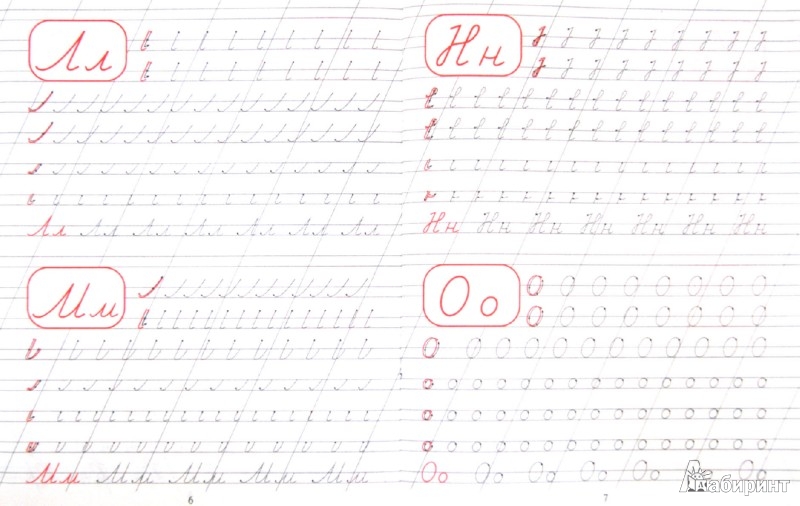 Лл
Лл Лл Лл Лл Лл Лл Лл
Мм
Мм Мм Мм Мм Мм
6
Нн
Нн Нн Нн Нн Нн Нн Нн
Оо
О О О О О О О О О
О О О О О О О О О
Оо Оо Оо Оо Оо Оо Оо
7
Лабиринт